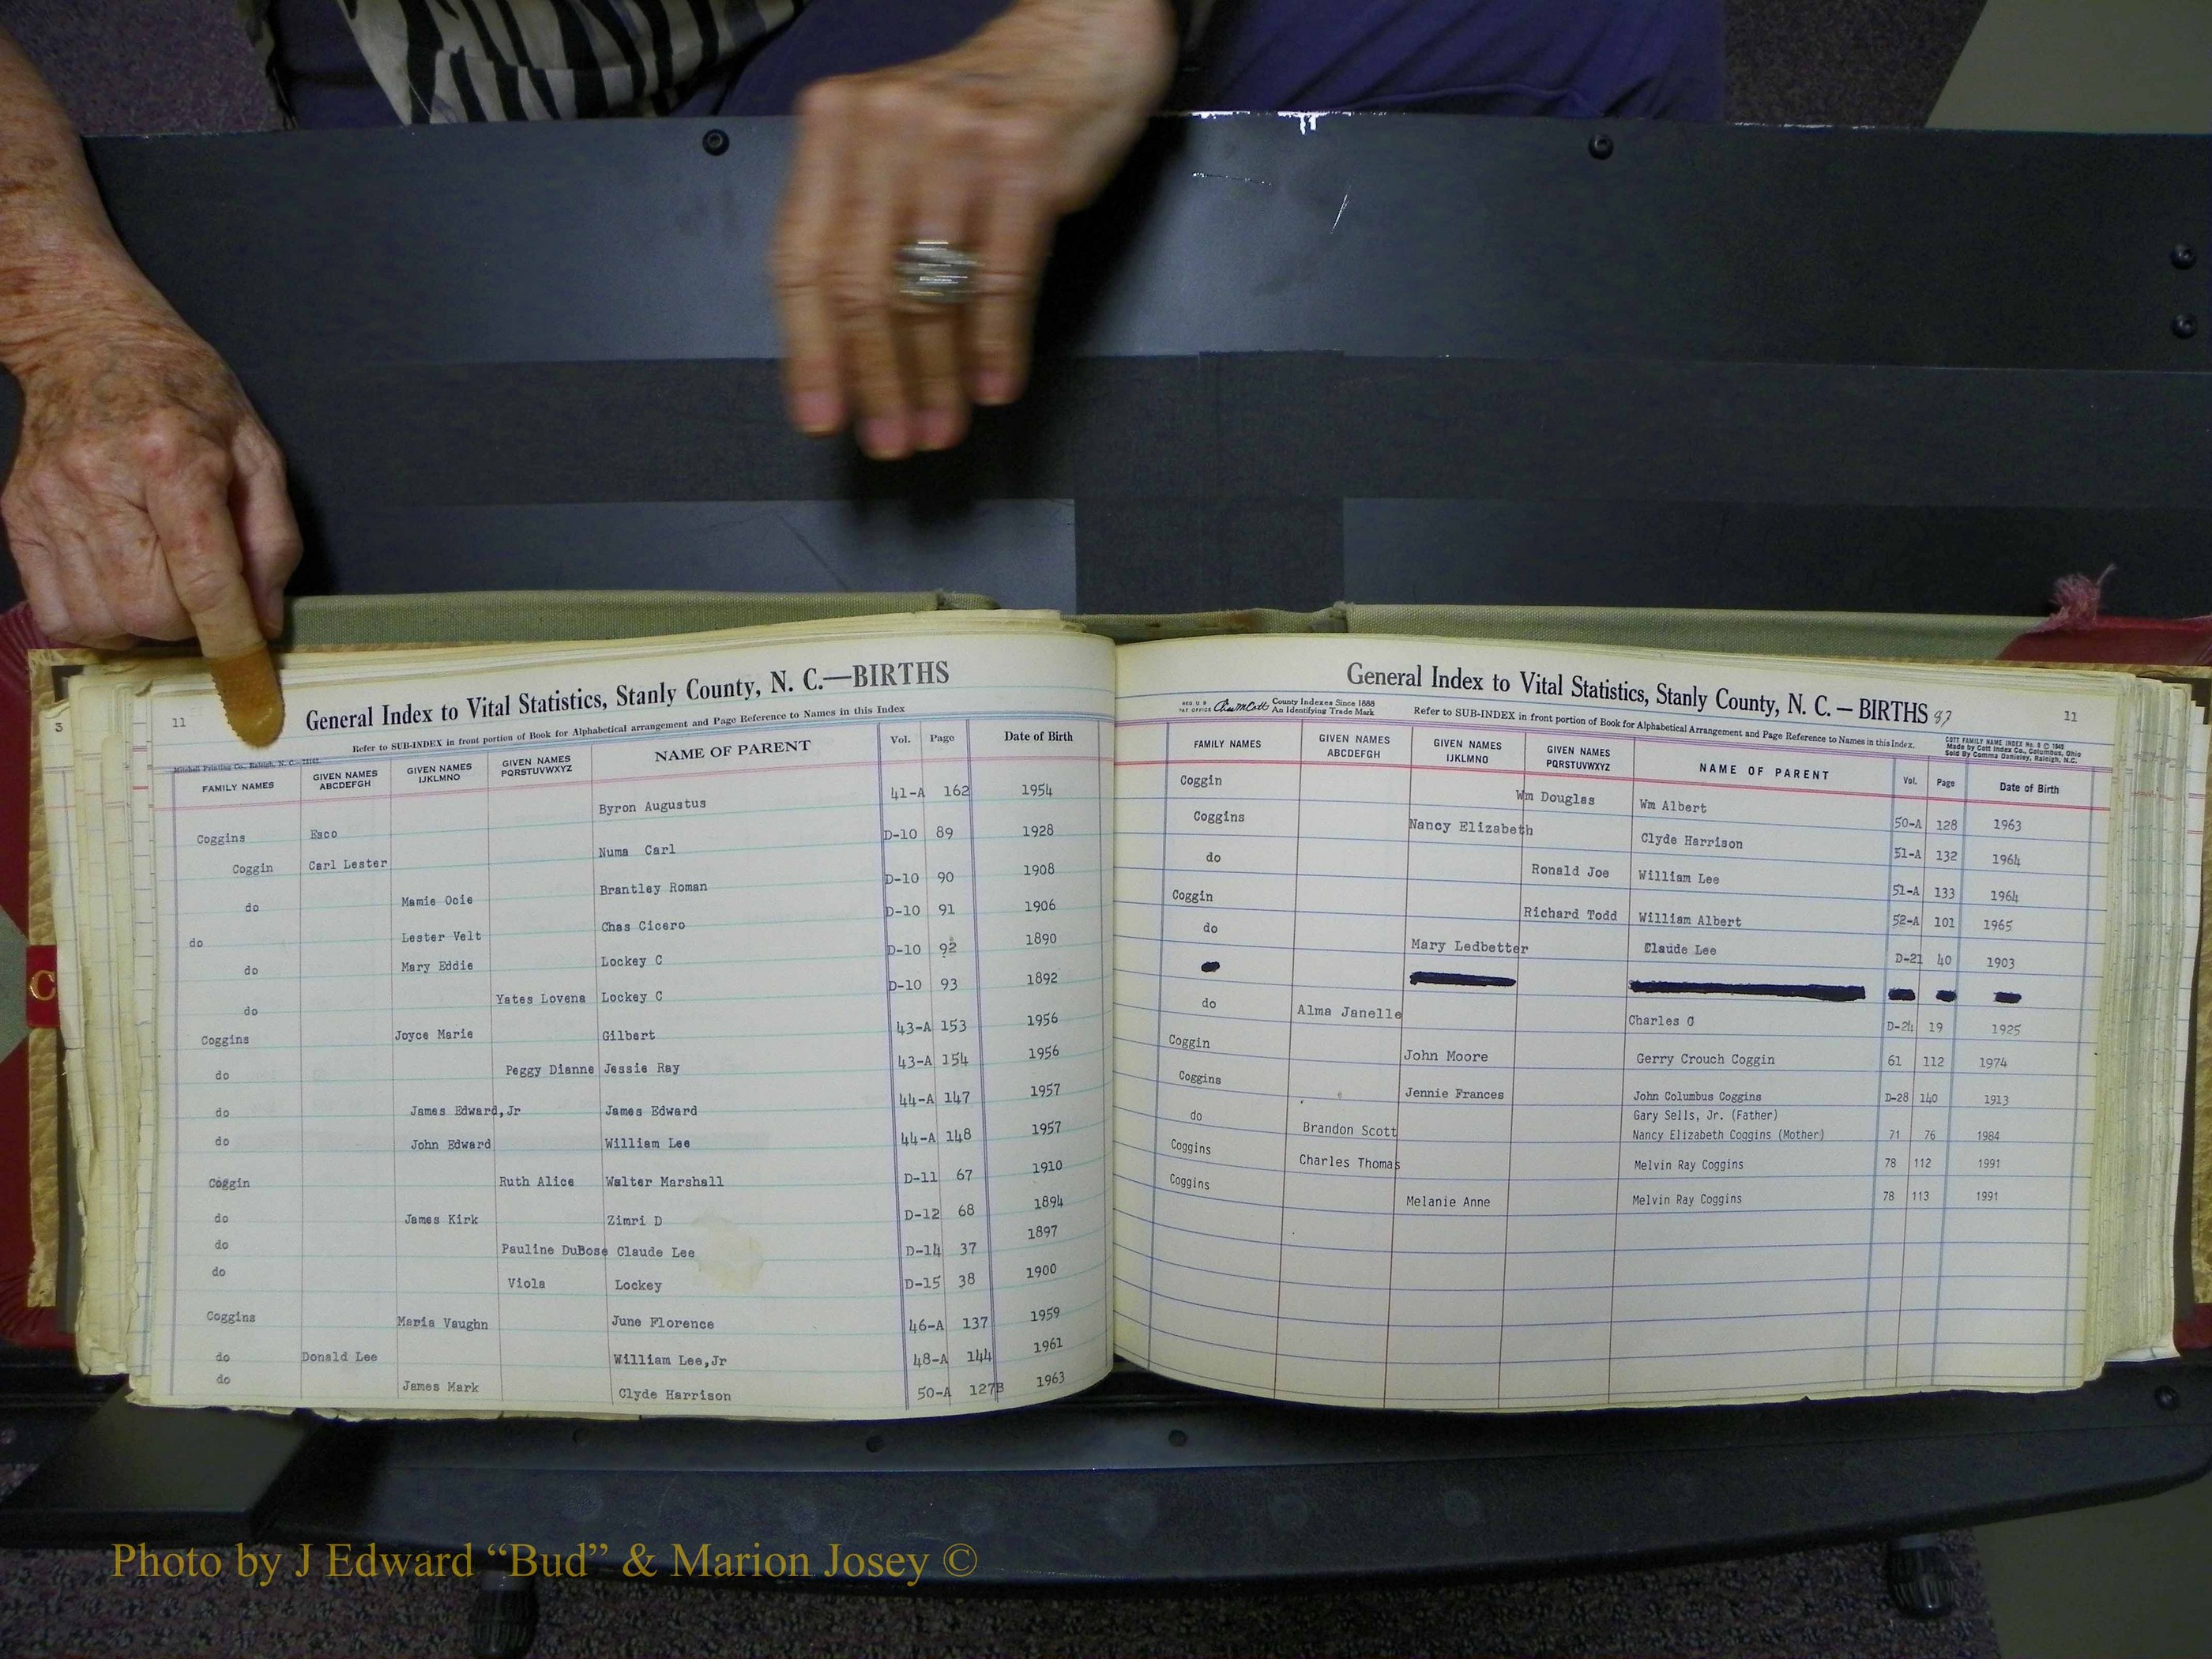 11
General Index to Vital Statistics, Stanly County, N. C.—BIRTHS
Refer to SUB-INDEX in front portion of Book for Alphabetical arrangement and Page Reference to Names in this Index
Mitchell Printing Co., Raleigh, N. C.
FAMILY NAMES GIVEN NAMES ABCDEFGH GIVEN NAMES IJKLMNO GIVEN NAMES PQRSTUVWXYZ NAME OF PARENT Vol. Page Date of Birth
Coggins Esco Byron Augustus 41-A 162 1954
Coggin Carl Lester Numa Carl D-10 89 1928
do Mamie Ocie Brantley Roman D-10 90 1908
do Lester Velt Chas Cicero D-10 91 1906
do Mary Eddie Lockey C D-10 92 1890
do Yates Lovena Lockey C D-10 93 1892
Coggins Joyce Marie Gilbert 43-A 153 1956
do Peggy Dianne Jessie Ray 43-A 154 1956
do James Edward,Jr James Edward 44-A 147 1957
do John Edward William Lee 44-A 148 1957
Coggin Ruth Alice Walter Marshall D-11 67 1910
do James Kirk Zimri D D-12 68 1894
do Pauline DuBose Claude Lee D-14 37 1897
do Viola Lockey D-15 38 1900
Coggins Maria Vaughn June Florence 46-A 137 1959
do Donald Lee William Lee,Jr 48-A 144 1961
do James Mark Clyde Harrison 50-A 127B 1963
3
C
General Index to Vital Statistics, Stanly County, N. C. — BIRTHS 87
11
REG. U S PAT OFFICE County Indexes Since 1888 An Identifying Trade Mark
Refer to SUB-INDEX in front portion of Book for Alphabetical Arrangement and Page Reference to Names in this Index.
COTT FAMILY NAME INDEX
Made by Cott Index Co., Columbus, Ohio
Sold By Comma Danieley, Raleigh, N.C.
FAMILY NAMES GIVEN NAMES ABCDEFGH GIVEN NAMES IJKLMNO GIVEN NAMES PQRSTUVWXYZ NAME OF PARENT Vol. Page Date of Birth
Coggin Wm Douglas Wm Albert 50-A 128 1963
Coggins Nancy Elizabeth Clyde Harrison 51-A 132 1964
do Ronald Joe William Lee 51-A 133 1964
Coggin Richard Todd William Albert 52-A 101 1965
do Mary Ledbetter Claude Lee D-21 40 1903
do Alma Janelle Charles C D-24 19 1925
Coggin John Moore Gerry Crouch Coggin 61 112 1974
Coggins Jennie Frances John Columbus Coggins D-28 140 1913
Gary Sells, Jr. (Father)
do Brandon Scott Nancy Elizabeth Coggins (Mother) 71 76 1984
Coggins Charles Thomas Melvin Ray Coggins 78 112 1991
Coggins Melanie Anne Melvin Ray Coggins 78 113 1991
Photo by J Edward “Bud” & Marion Josey ©